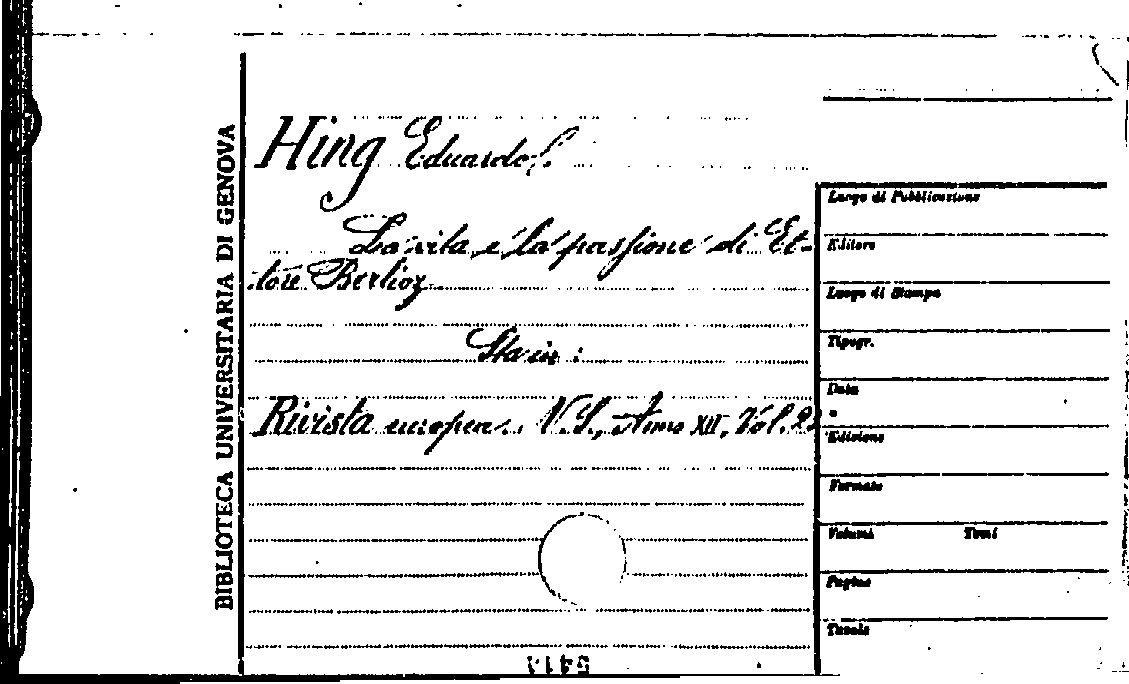 BIBLIOTECA UNIVERSITARIA DI GENOVA
Hing Eduardo.
La vita e la passione di Et-
tore Berlioz
Sta in:
Rivista europea. N.S., Anno XII, Vol. 23
Luogo di Pubblicazione
Editore
Luogo di Stampa
Tipogr.
Data
Edizione
Formato
Volumi Tomi
Pagine
Tavole